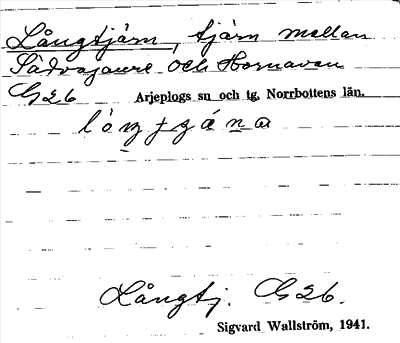 Långtjärn, tjärn mellan
Sädvajaure och Hornavan
G26 Arjeplogs sn och tg, Norrbottens län.
Långtj. G26.
Sigvard Wallström, 1941.